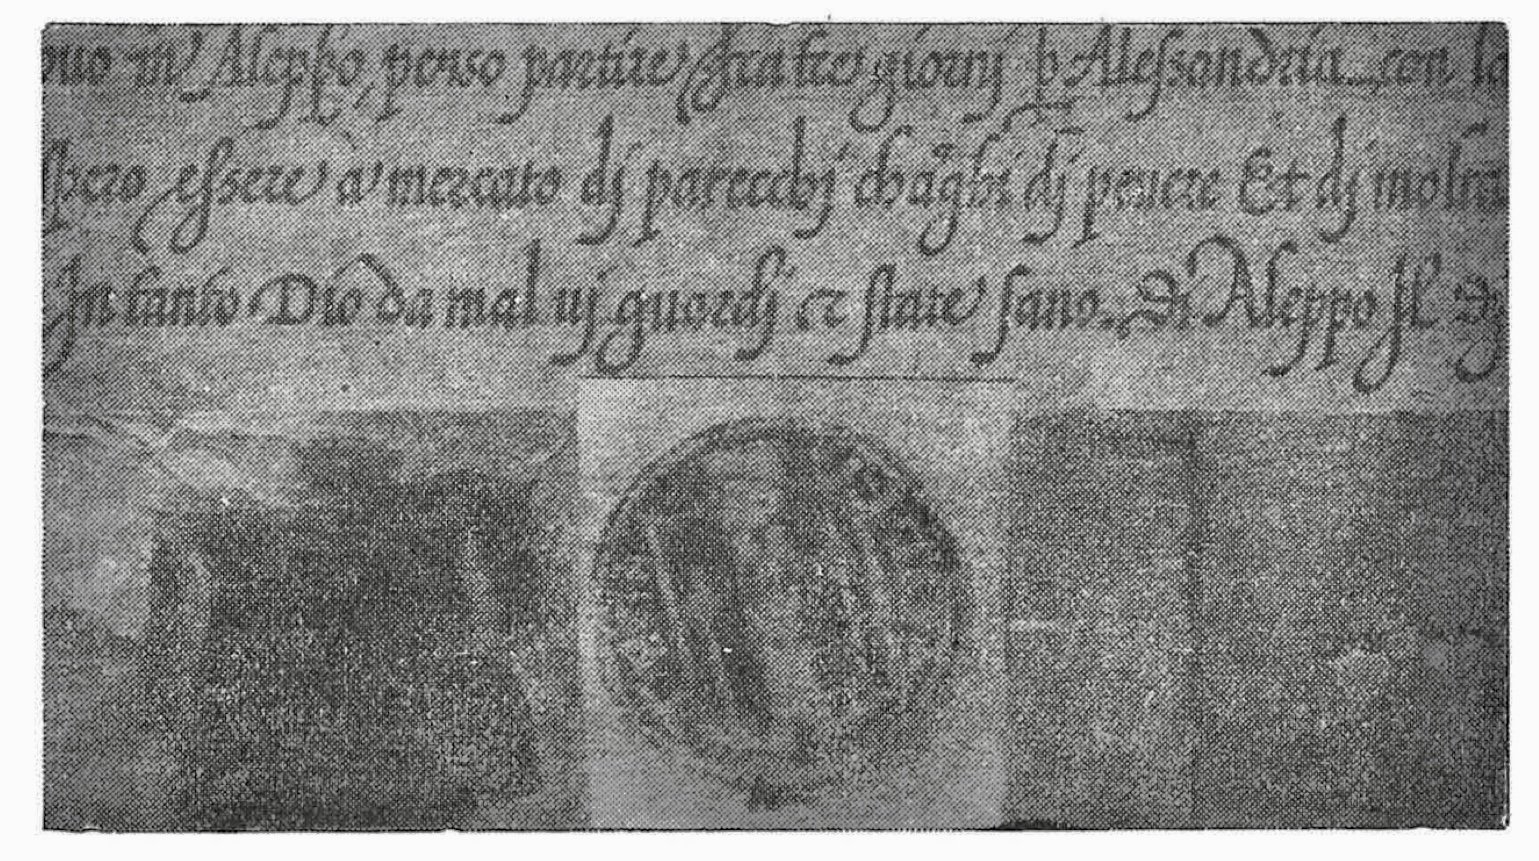 in Aleppo, penso partire fra tre giornj p Alessandria con
essere a mercato dj parecchj dj pevere Et dj
In tanto Dio da mal vj guardj et state sano. Di Aleppo Il